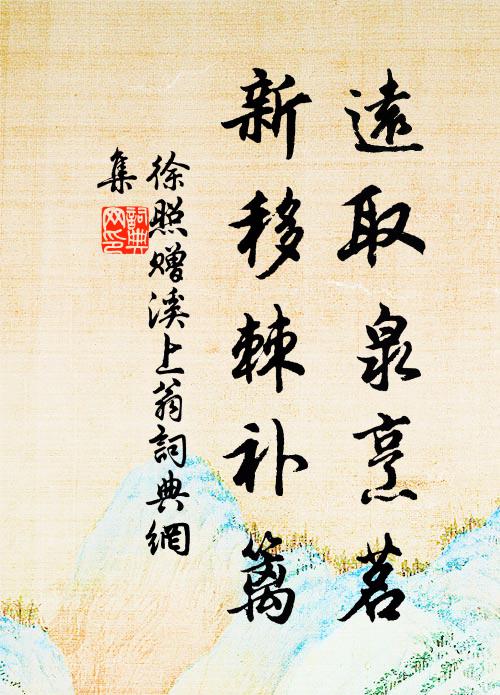 遠取泉烹茗
新移棘补篱
徐照赠溪上翁詞典網
集
詞典网印